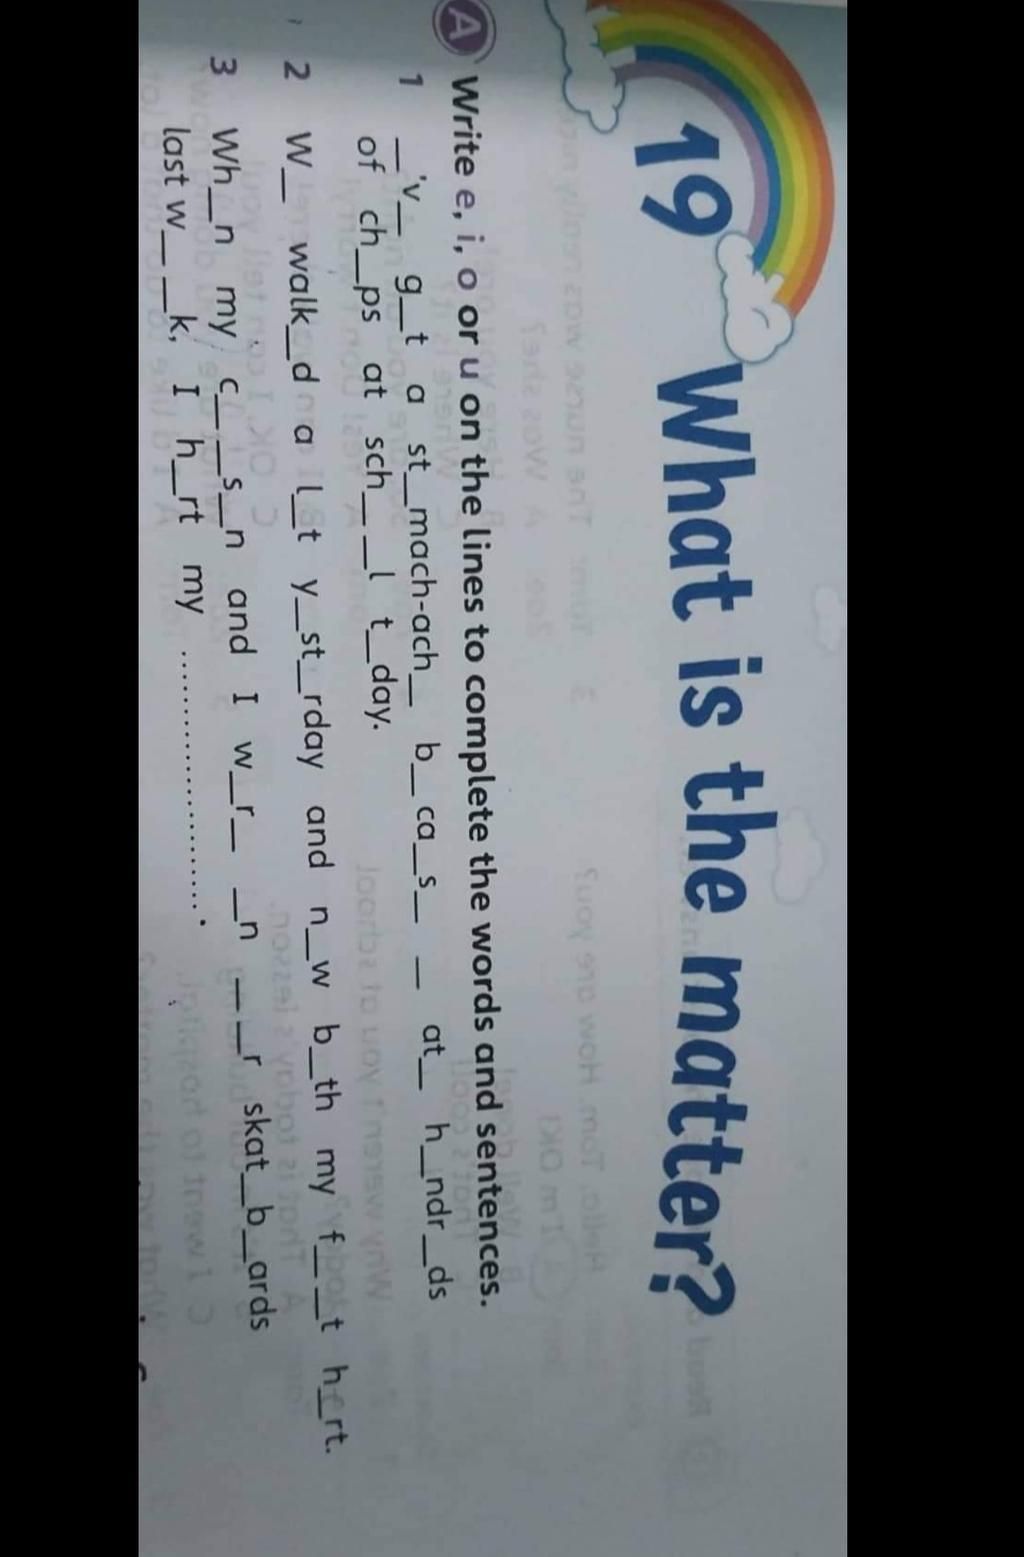 19 What is the matter?
A Write e, i, o or u on the lines to complete the words and sentences.
1 __'v__ g__t a st__mach-ach__ b__ca__s__ __ at__ h__ndr__ds
of ch__ps at sch__ __l t__day.
2 W__ walk__d a l__t y__st__rday and n__w b__th my f__ __t h__rt.
3 Wh__n my c__ __s__n and I w__r__ __n __ __r skat__b__ards
last w__ __k, I h__rt my ........................ .